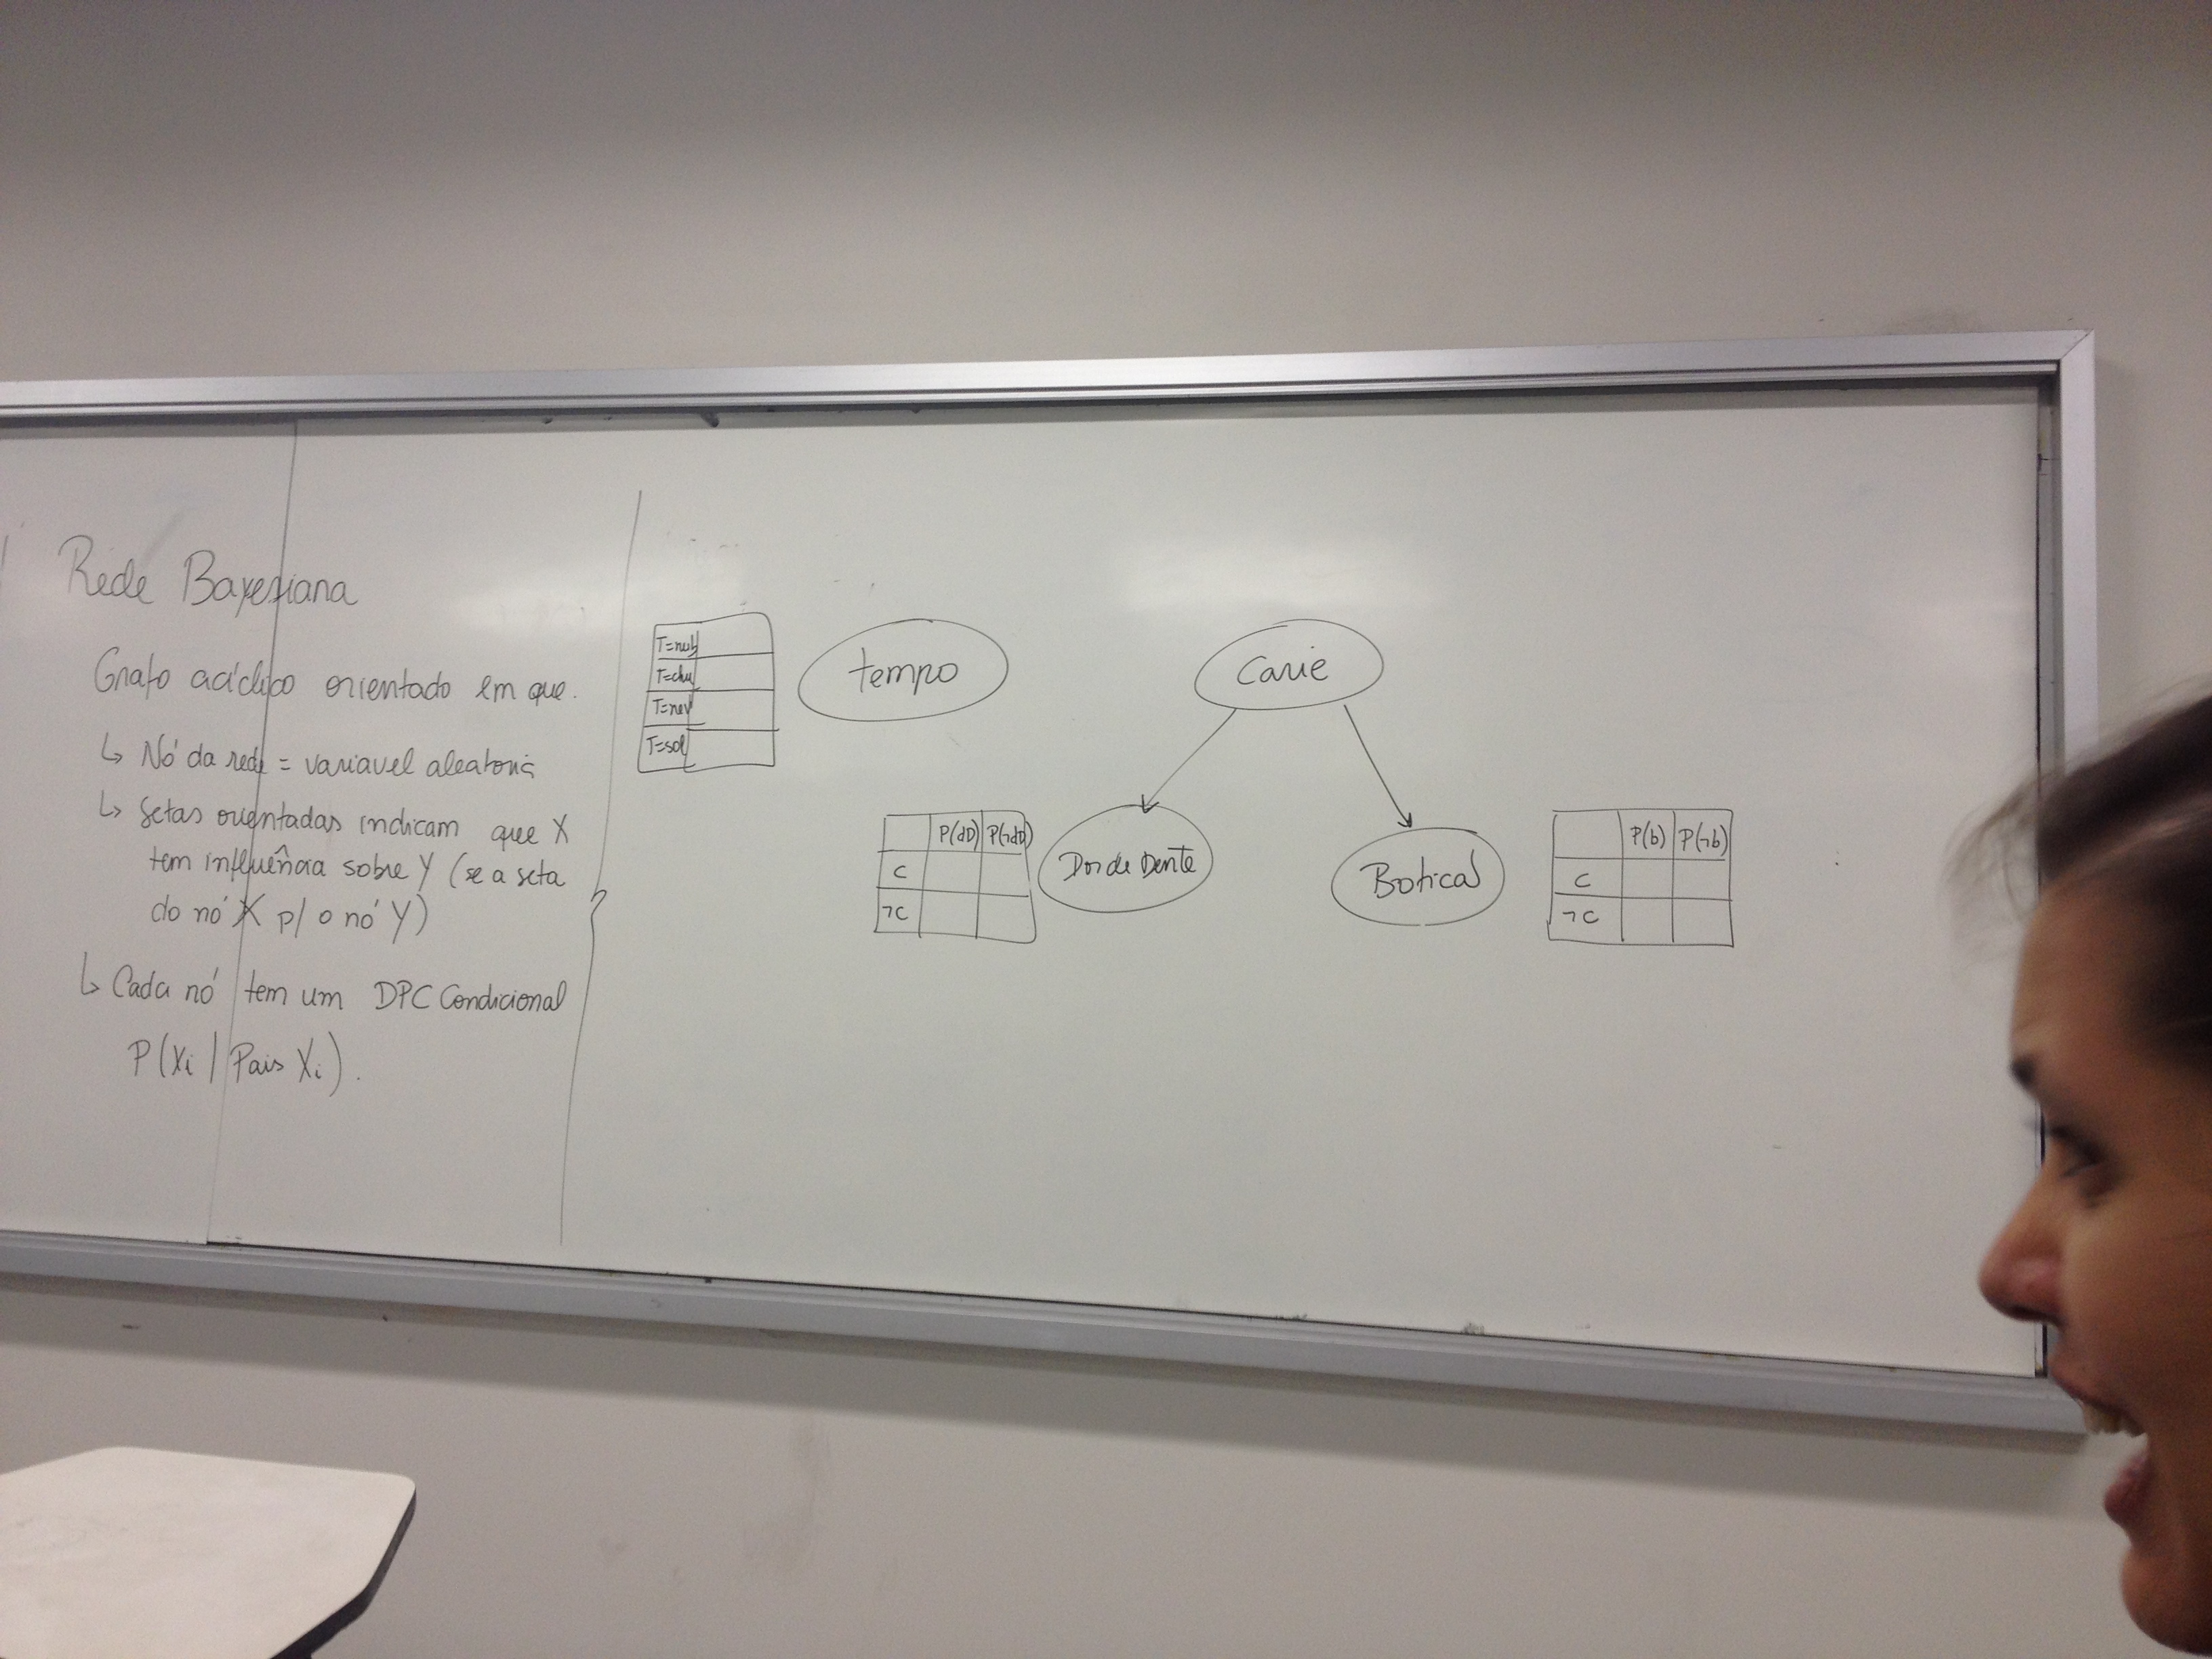 Rede Bayesiana
Grafo acíclico orientado em que.
↳ Nó da rede = variavel aleatoria
↳ Setas orientadas indicam que X
tem influência sobre Y (se a seta
do nó X p/ o nó Y)
↳ Cada nó tem um DPC Condicional
P(Xi | Pais Xi).
T=nub
T=chu
T=nev
T=sol
tempo
Carie
P(dD) P(¬dD)
C
¬C
Dor de Dente
Botical
P(b) P(¬b)
C
¬C